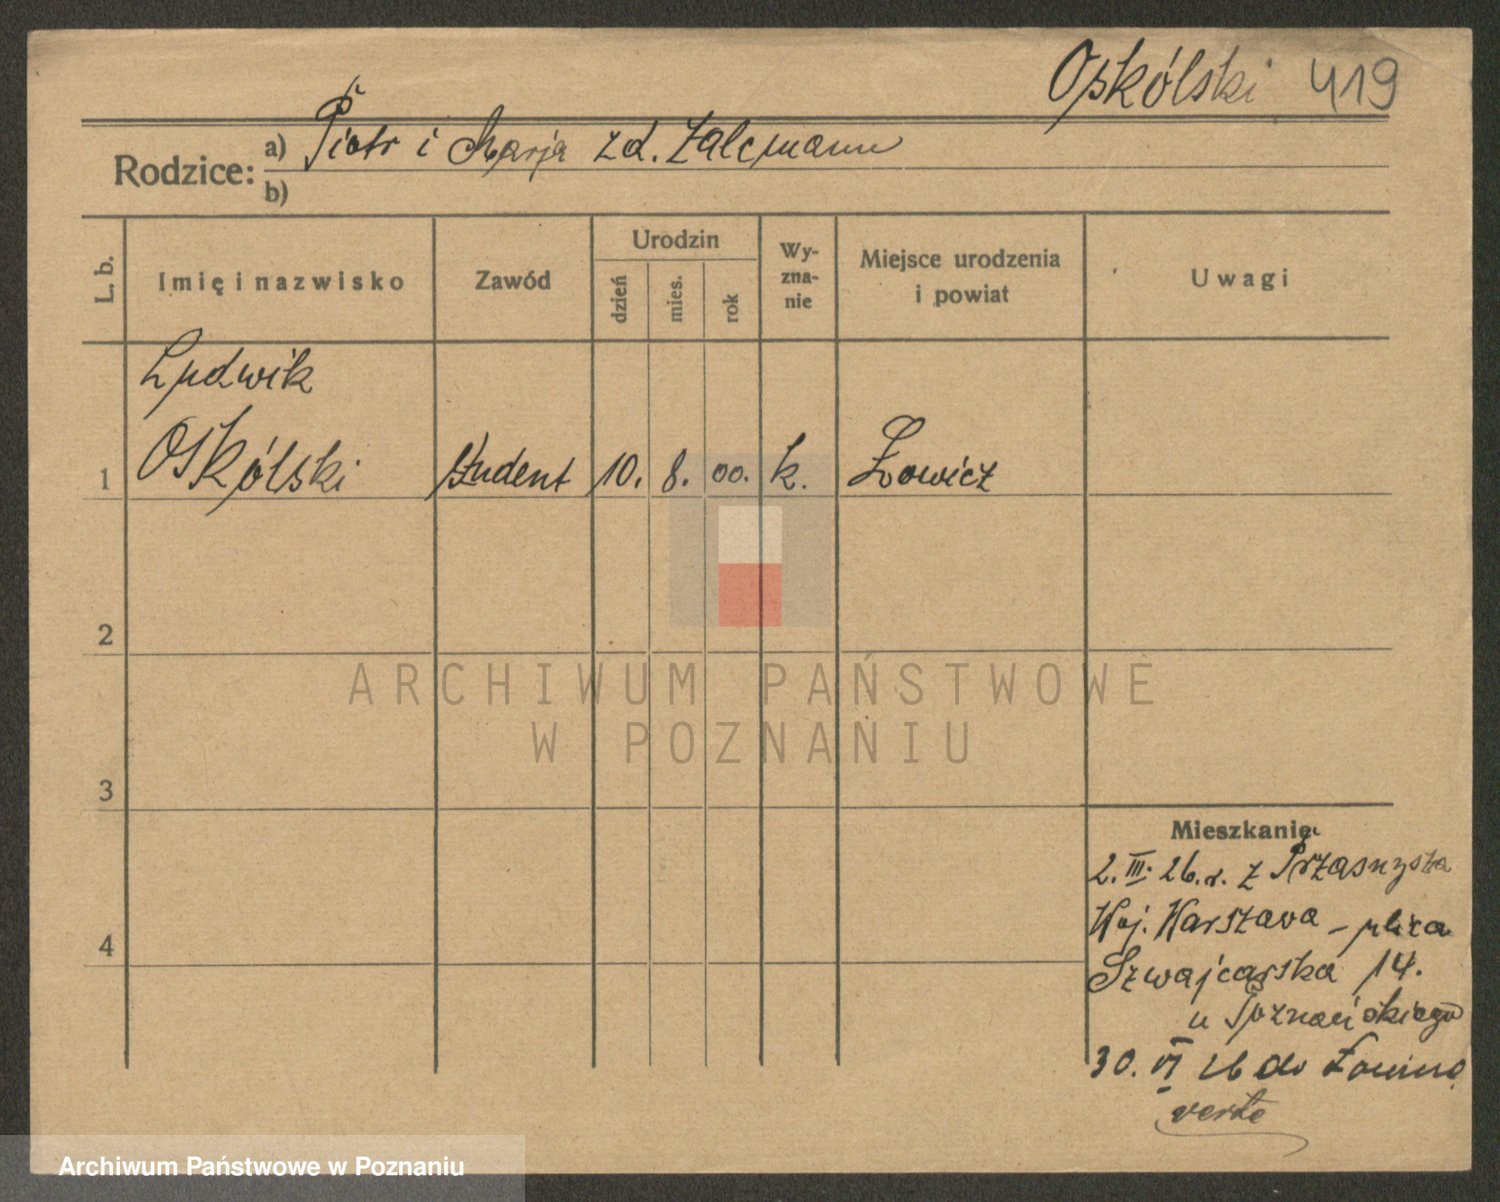 Opkólski 419
Rodzice: a) Piotr i Marja zd. Zalcmann
b)
L. b.
Imię i nazwisko
Zawód
Urodzin
dzień
mies.
rok
Wy-
zna-
nie
Miejsce urodzenia
i powiat
Uwagi
Ludwik
1 Oskólski student 10. 8. 00. k. Łowicz
2
3
4
Mieszkanie
2. III. 26. r. z Przasnysza
Woj. Warszawa – ulica
Szwajcarska 14.
u Poznańskiego
30. VI 26 do
verte
ARCHIWUM PAŃSTWOWE
W POZNANIU
Archiwum Państwowe w Poznaniu